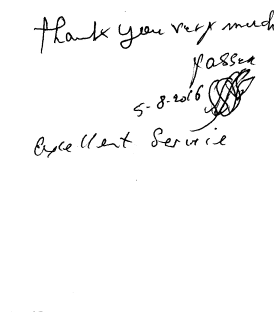 thank you very much
yassen
5-8-2016
Excellent Service